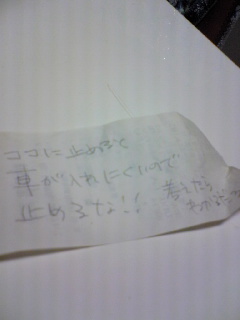 ココに止めると
車が入れにくいので
止めるな!! 考えたら
わかるだろ